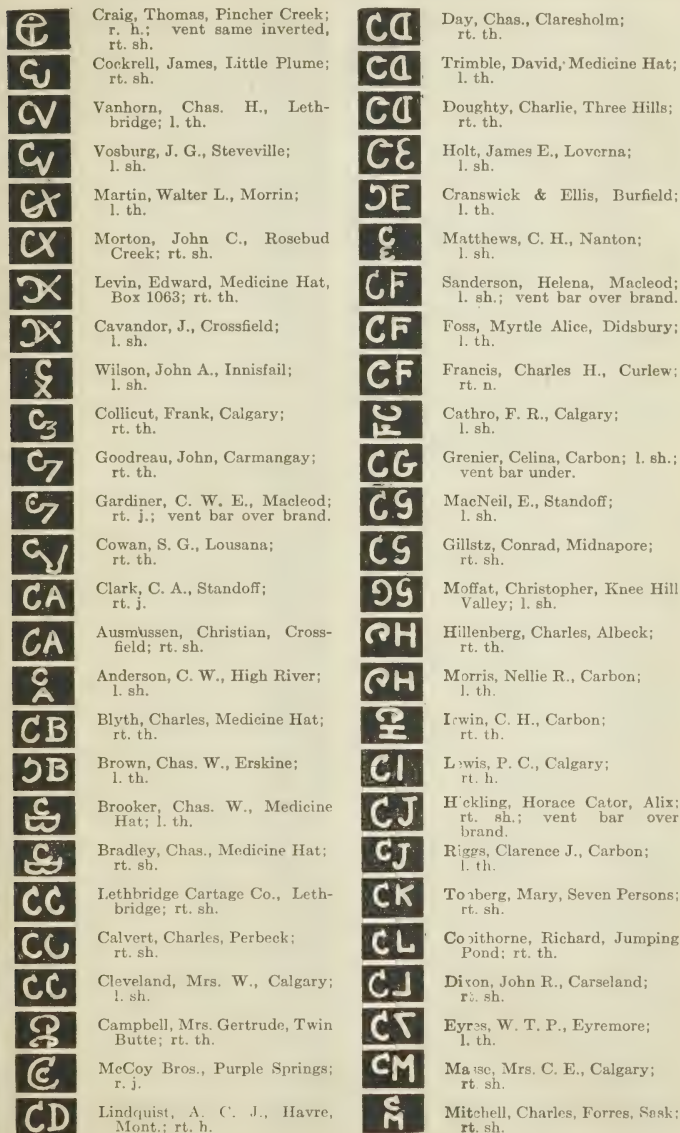 Craig, Thomas, Pincher Creek;
r. h.; vent same inverted,
rt. sh.
Cockrell, James, Little Plume;
rt. sh.
Vanhorn, Chas. H., Leth-
bridge; l. th.
Vosburg, J. G., Steveville;
l. sh.
Martin, Walter L., Morrin;
l. th.
CX Morton, John C., Rosebud
Creek; rt. sh.
Levin, Edward, Medicine Hat,
Box 1063; rt. th.
Cavandor, J., Crossfield;
l. sh.
Wilson, John A., Innisfail;
l. sh.
C3 Collicut, Frank, Calgary;
rt. th.
C7 Goodreau, John, Carmangay;
rt. th.
Gardiner, C. W. E., Macleod;
rt. j.; vent bar over brand.
Cowan, S. G., Lousana;
rt. th.
CA Clark, C. A., Standoff;
rt. j.
CA Ausmussen, Christian, Cross-
field; rt. sh.
Anderson, C. W., High River;
l. sh.
CB Blyth, Charles, Medicine Hat;
rt. th.
Brown, Chas. W., Erskine;
l. th.
Brooker, Chas. W., Medicine
Hat; l. th.
Bradley, Chas., Medicine Hat;
rt. sh.
CC Lethbridge Cartage Co., Leth-
bridge; rt. sh.
Calvert, Charles, Perbeck;
rt. sh.
CC Cleveland, Mrs. W., Calgary;
l. sh.
Campbell, Mrs. Gertrude, Twin
Butte; rt. th.
McCoy Bros., Purple Springs;
r. j.
CD Lindquist, A. C. J., Havre,
Mont.; rt. h.
Day, Chas., Claresholm;
rt. th.
Trimble, David, Medicine Hat;
l. th.
Doughty, Charlie, Three Hills;
rt. th.
Holt, James E., Loverna;
l. sh.
Cranswick & Ellis, Burfield;
l. th.
Matthews, C. H., Nanton;
l. sh.
CF Sanderson, Helena, Macleod;
l. sh.; vent bar over brand.
CF Foss, Myrtle Alice, Didsbury;
l. th.
CF Francis, Charles H., Curlew;
rt. n.
Cathro, F. R., Calgary;
l. sh.
CG Grenier, Celina, Carbon; l. sh.;
vent bar under.
MacNeil, E., Standoff;
l. sh.
Gillstz, Conrad, Midnapore;
rt. sh.
Moffat, Christopher, Knee Hill
Valley; l. sh.
Hillenberg, Charles, Albeck;
rt. th.
Morris, Nellie R., Carbon;
l. th.
Irwin, C. H., Carbon;
rt. th.
CI Lewis, P. C., Calgary;
rt. h.
CJ Hickling, Horace Cator, Alix;
rt. sh.; vent bar over
brand.
CJ Riggs, Clarence J., Carbon;
l. th.
CK Tonberg, Mary, Seven Persons;
rt. sh.
CL Copithorne, Richard, Jumping
Pond; rt. th.
Dixon, John R., Carseland;
rt. sh.
Eyres, W. T. P., Eyremore;
l. th.
CM Mrs. C. E., Calgary;
rt. sh.
Mitchell, Charles, Forres, Sask;
rt. sh.